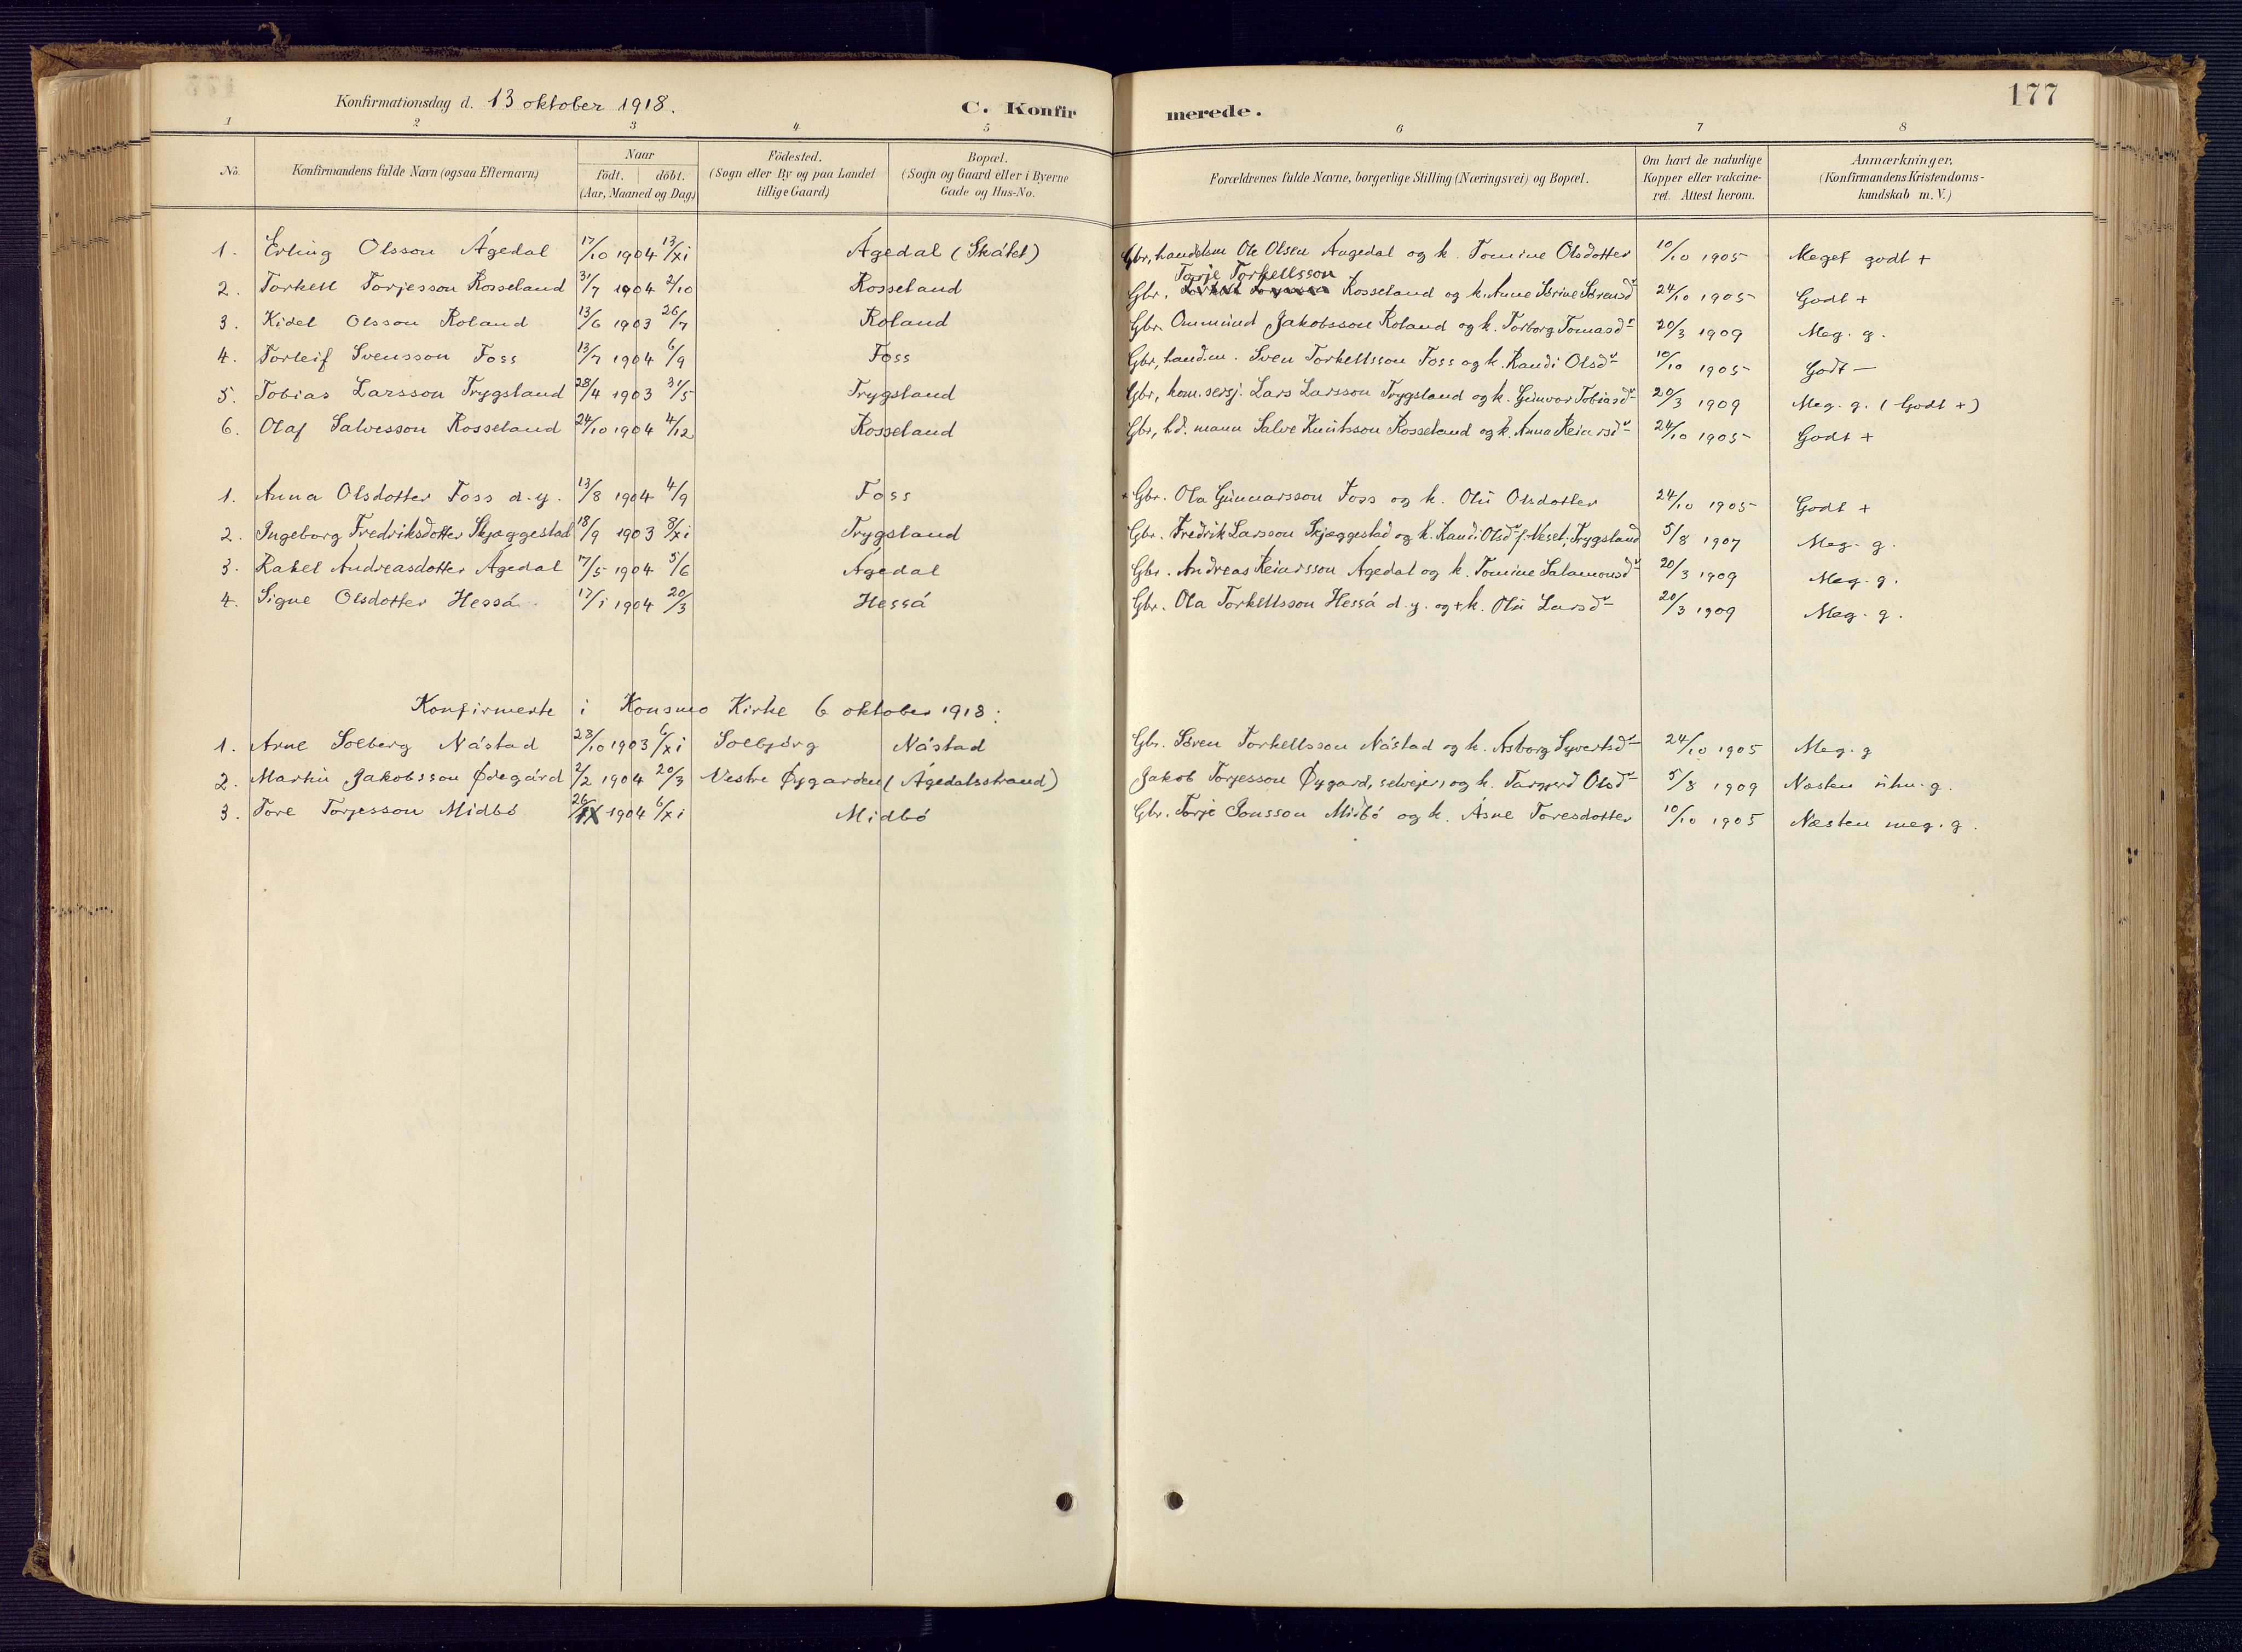 177
Konfirmationsdag d. 13 oktober 1918.
C. Konfirmerede.
1 2 3 4 5 6 7 8
No. Konfirmandens fulde Navn (ogsaa Efternavn) Naar født. døbt. (Aar, Maaned og Dag) Födested. (Sogn eller By og paa Landet tillige Gaard) Bopæl. (Sogn og Gaard eller i Byerne Gade og Hus-No. Forældrenes fulde Navne, borgerlige Stilling (Næringsvei) og Bopæl. Om havt de naturlige Kopper eller vakcineret. Attest herom. Anmærkninger, (Konfirmandens Kristendomskundskab m. V.)
1. Erling Olsson Ágedal 17/10 1904 13/xi Ágedal (Skálel) Gbr, handelsm Ole Olsen Aagedal og k. Tomine Olsdotter 10/10 1905 Meget godt +
2. Torkell Torjesson Rosseland 31/7 1904 2/10 Rosseland Gbr. Torje Torkellsson Rosseland og k. Anne Sørine Sørensdr 24/10 1905 Godt +
3. Kidel Olsson Roland 13/6 1903 26/7 Roland Gbr. Ommund Jakobsson Roland og k. Torborg Tomasdr 20/3 1909 Meg. g.
4. Torleif Svensson Foss 13/7 1904 6/9 Foss Gbr, hand.m. Sven Torkellsson Foss og k. Randi Olsdr 10/10 1905 Godt —
5. Tobias Larsson Trygsland 28/4 1903 31/5 Trygsland Gbr, kom.sersj. Lars Larsson Trygsland og k. Gunvor Tobiasdr 20/3 1909 Meg. g. (Godt +)
6. Olaf Salvesson Rosseland 24/10 1904 4/12 Rosseland Gbr, hd. mann Salve Knutsson Rosseland og k. Anna Reiarsdr 24/10 1905 Godt +
1. Anna Olsdotter Foss d. y. 13/8 1904 4/9 Foss + Gbr. Ola Gunnarsson Foss og k. Olu Olsdotter 24/10 1905 Godt +
2. Ingeborg Fredriksdotter Skjæggestad 18/9 1903 8/xi Trygsland Gbr. Fredrik Larsson Skjæggestad og k. Randi Olsdr f. Neset, Trygsland 5/8 1907 Meg. g.
3. Rakel Andreasdotter Ágedal 17/5 1904 5/6 Ágedal Gbr. Andreas Reiarsson Ágedal og k. Tomine Salamonsdr 20/3 1909 Meg. g.
4. Signe Olsdotter Hessá 17/i 1904 20/3 Hessá Gbr. Ola Torkellsson Hessá d. y. og + k. Olu Larsdr 20/3 1909 Meg. g.
Konfirmerte i Konsmo Kirke 6 oktober 1918:
1. Arne Solberg Nástad 28/10 1903 6/xi Solbjörg Nástad Gbr. Søren Torkellsson Nástad og k. Ásborg Syvertsdr 24/10 1905 Meg. g
2. Martin Jakobsson Ødegárd 2/2 1904 20/3 Vestre Øygarden (Ágedalsstrand) Jakob Torjesson Øygard, selvejer, og k. Targjerd Olsdr 5/8 1909 Næsten g.
3. Tore Torjesson Midbö 26/IX 1904 6/xi Midbö Gbr. Torje Jonsson Midbö og k. Ásne Toresdotter 10/10 1905 Næsten meg. g.